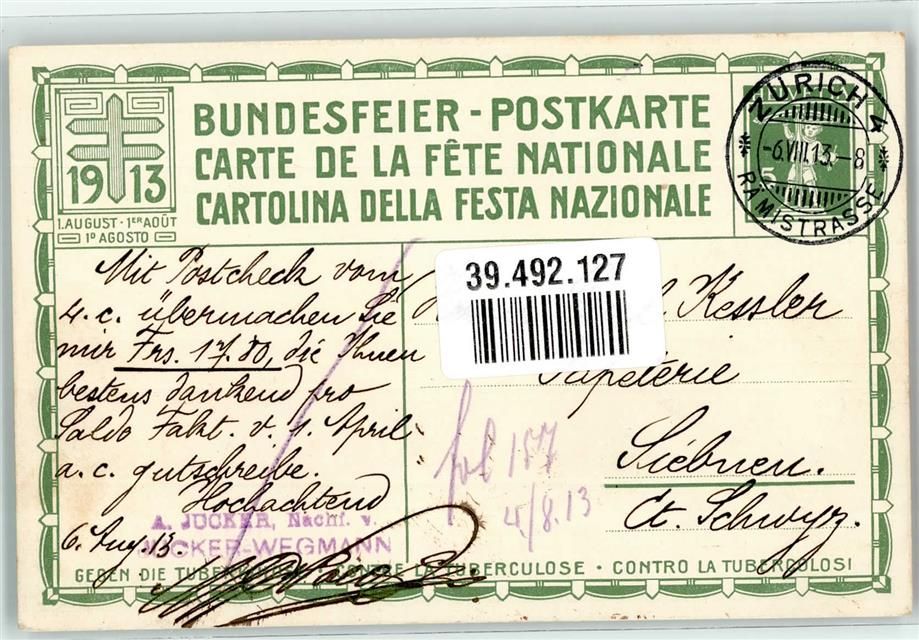 BUNDESFEIER - POSTKARTE
CARTE DE LA FÊTE NATIONALE
CARTOLINA DELLA FESTA NAZIONALE
1913
1. AUGUST · 1ER AOÛT
1º AGOSTO
ZÜRICH 4
-6.VIII.13.-8
RÄMISTRASSE
39.492.127
Mit Postcheck vom
4. c. übermachen Sie
mir Frs. 17.80, die Ihnen
bestens dankend pro
Saldo Fakt. v. 1. April
a. c. gutschreibe.
Hochachtend
6. Aug. 13.
A. JUCKER, Nachf. v.
JUCKER-WEGMANN
Kessler
Papeterie
Siebnen.
Ct. Schwyz.
fol 157
4/8.13
GEGEN DIE TUBERKULOSE · CONTRE LA TUBERCULOSE · CONTRO LA TUBERCOLOSI